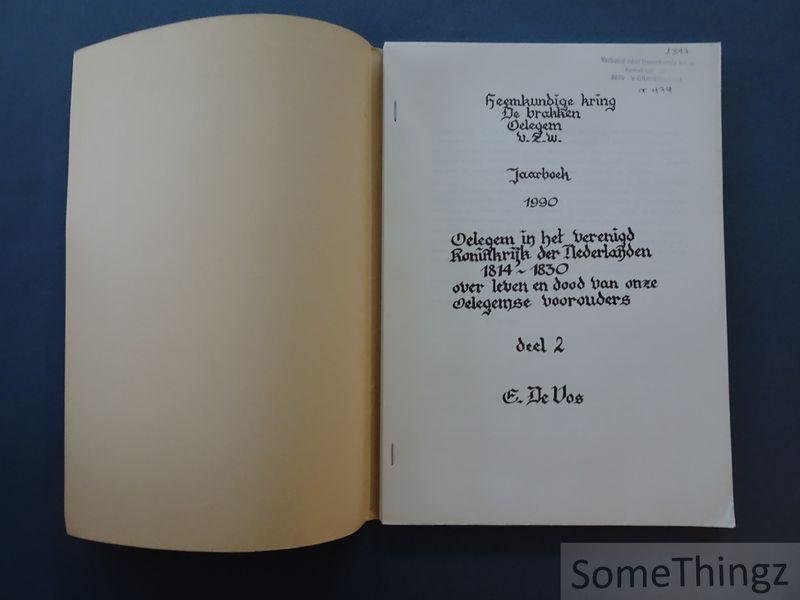 1343
Verbond voor Heemkunde
nr 474
Heemkundige kring
De brakken
Oelegem
v.z.w.
Jaarboek
1990
Oelegem in het verenigd
Koninkrijk der Nederlanden
1814 - 1830
over leven en dood van onze
Oelegemse voorouders
deel 2
E. De Vos
SomeThingz